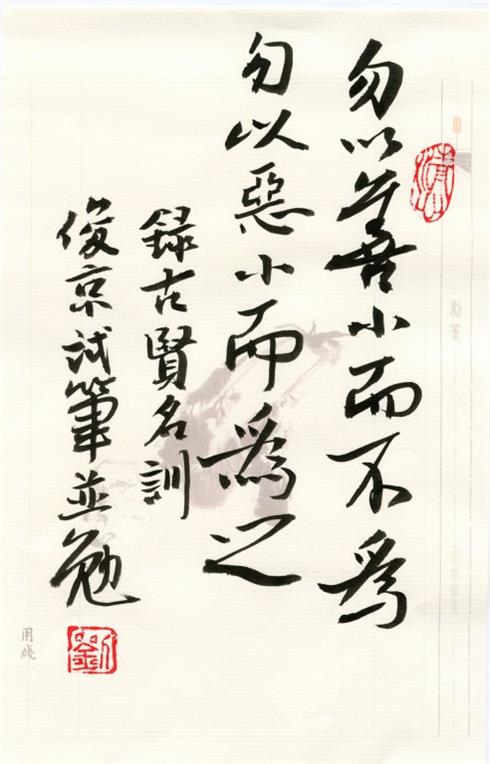 勿以善小而不為
勿以惡小而為之
録古賢名訓
俊京試筆並勉
劉
用牋